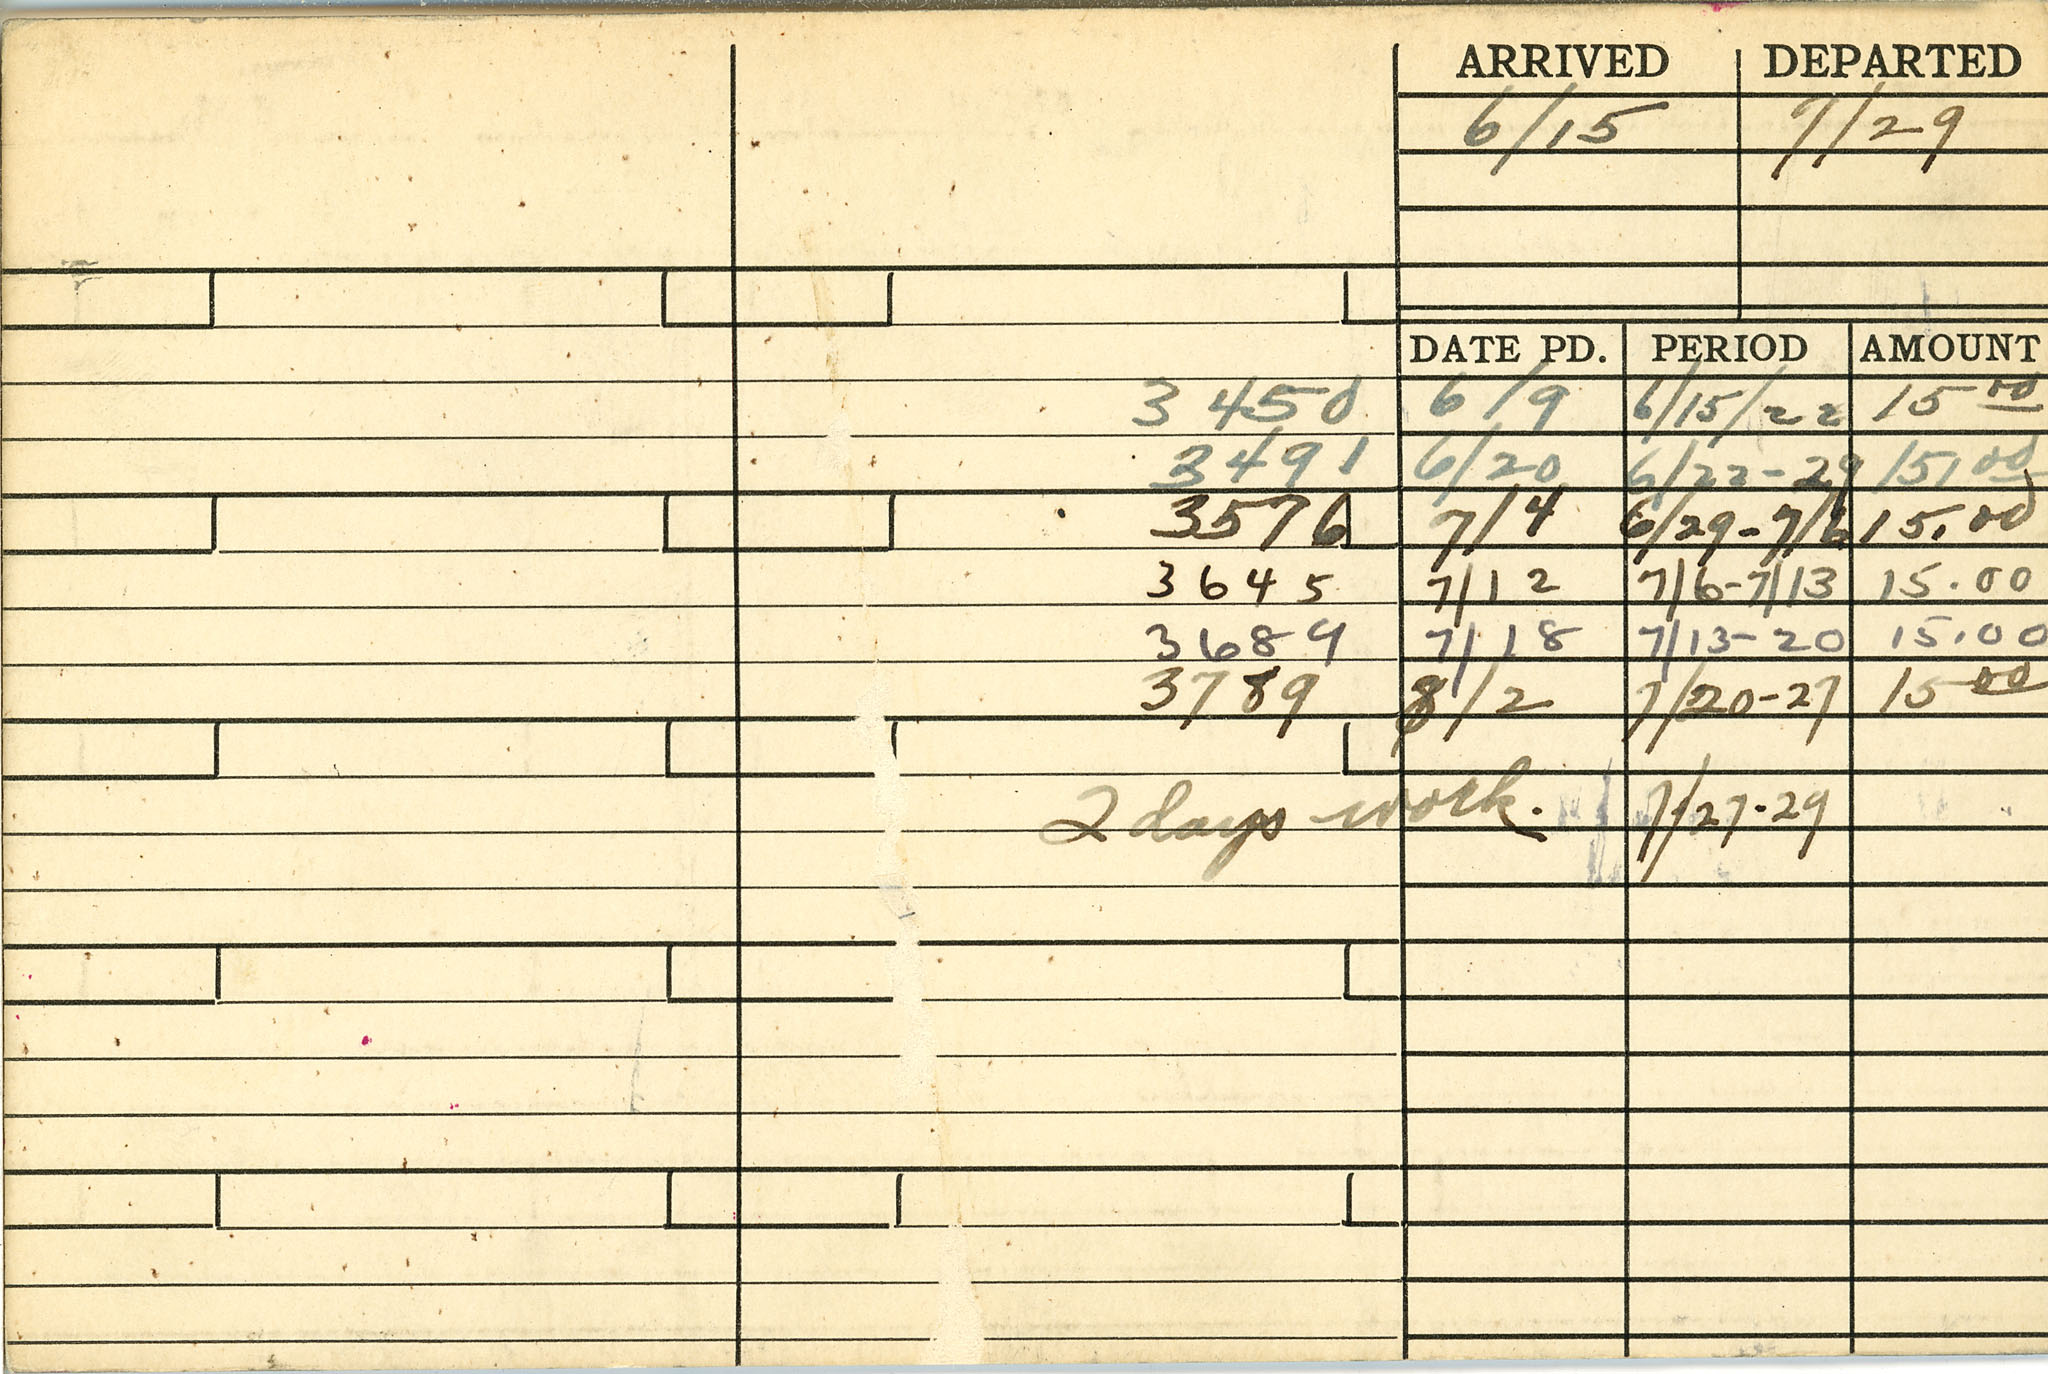 ARRIVED DEPARTED
6/15 7/29
DATE PD. PERIOD AMOUNT
3450 6/9 6/15/22 15 00
3491 6/20 6/22-29 15.00
3576 7/4 6/29-7/6 15.00
3645 7/12 7/6-7/13 15.00
3689 7/18 7/13-20 15.00
3789 8/2 7/20-27 15 00
2 days work. 7/27-29